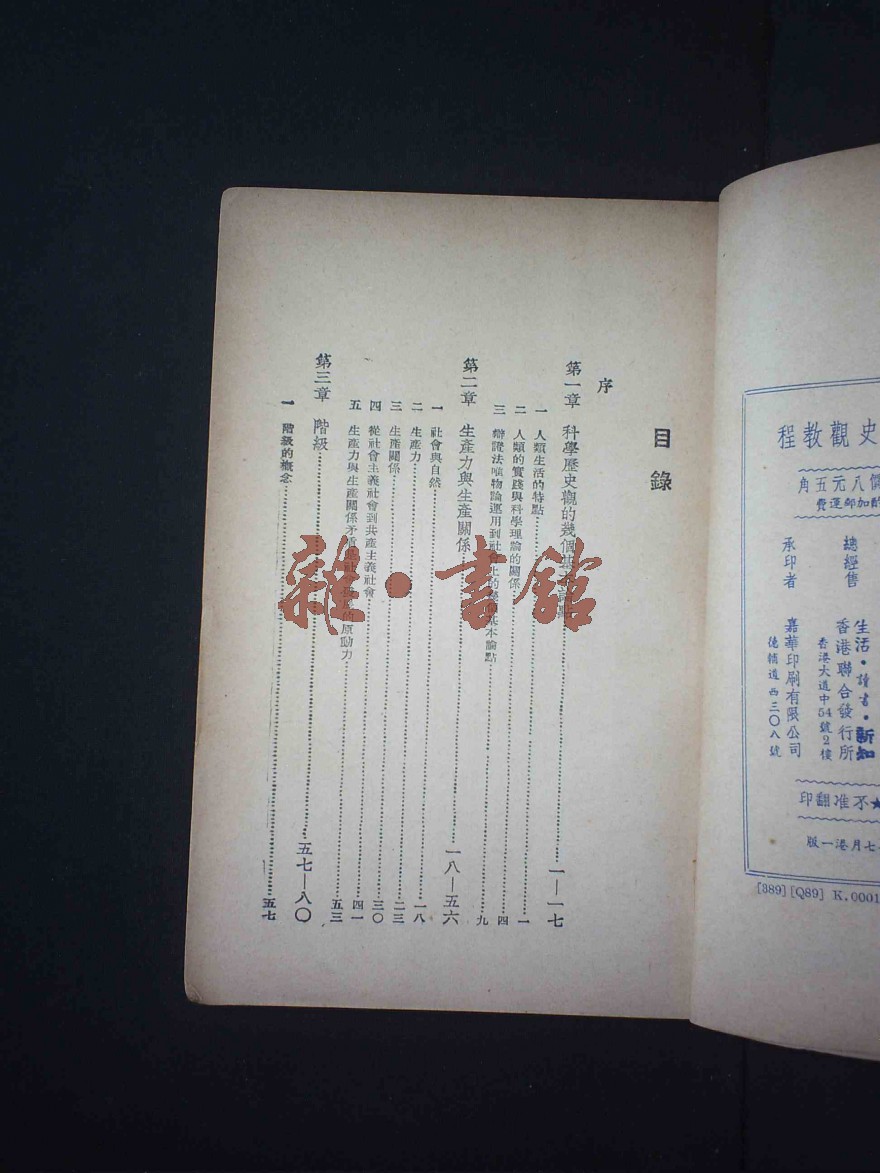 史觀教程
價八元五角
酌加郵運費
總經售
生活·讀書·新知
香港聯合發行所
香港大道中54號2樓
承印者 嘉華印刷有限公司
德輔道西三〇八號
★不准翻印
七月港一版
[389][Q89] K.0001
目錄
序
第一章 科學歷史觀的幾個基本論點……一—一七
一 人類生活的特點……一
二 人類的實踐與科學理論的關係……四
三 辯證法唯物論運用到社會上的幾個基本論點……九
第二章 生產力與生產關係……一八—五六
一 社會與自然……一八
二 生產力……二三
三 生產關係……三〇
四 從社會主義社會到共產主義社會……四一
五 生產力與生產關係矛盾 社 的原動力……五三
第三章 階級……五七—八〇
一 階級的概念……五七
雜·書館